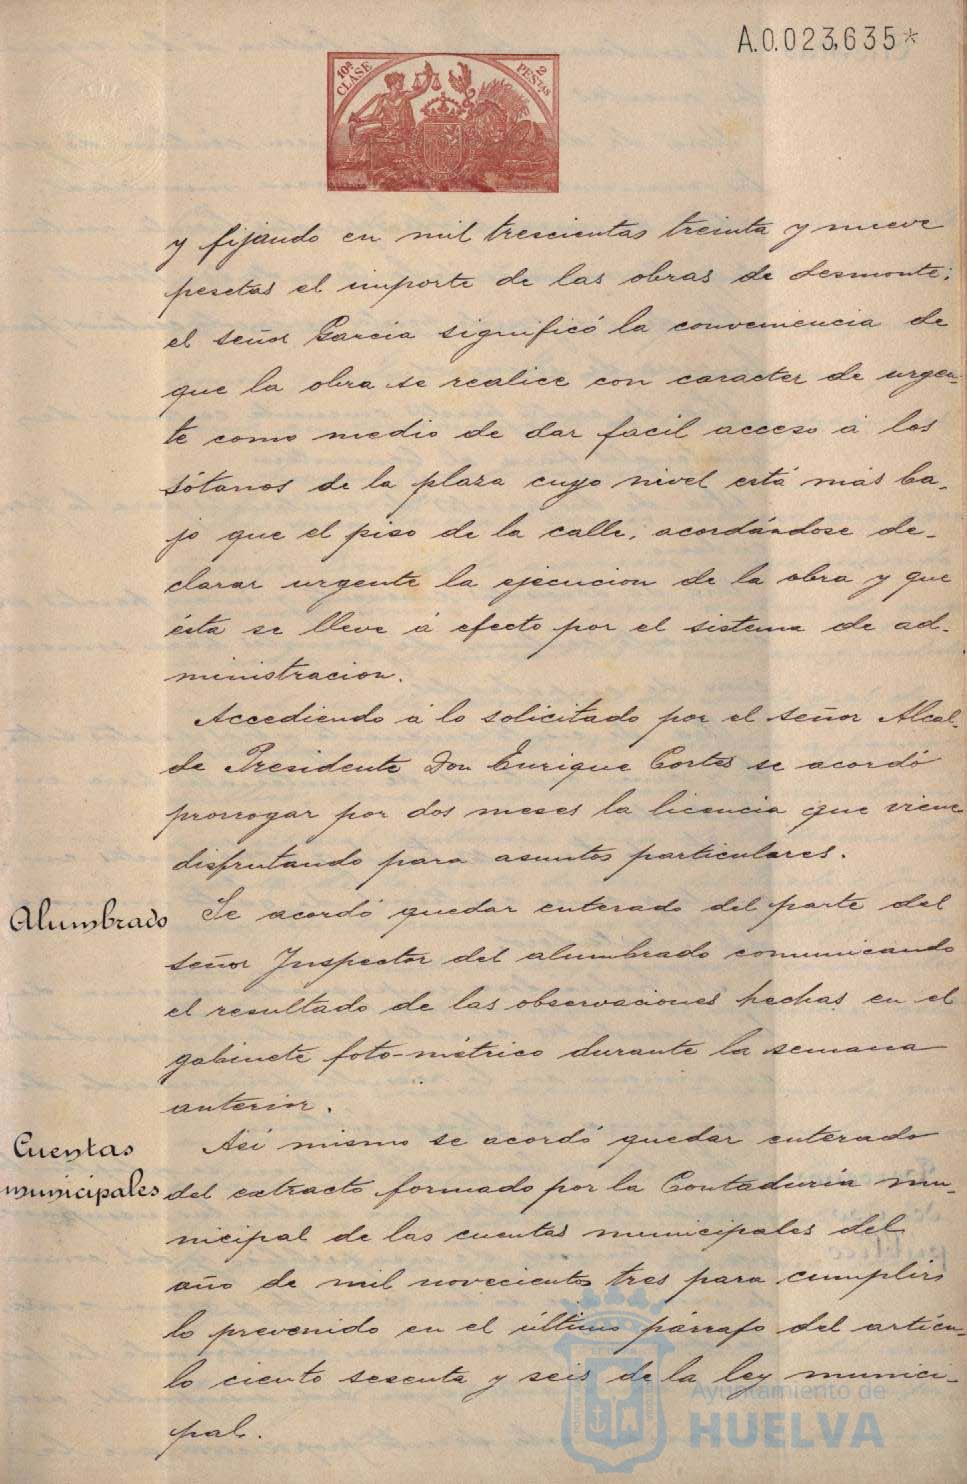 A.0.023,635*
10ª CLASE
2 PESETAS
y fijando en mil trescientas treinta y nueve
pesetas el importe de las obras de desmonte;
el señor Garcia significó la conveniencia de
que la obra se realice con caracter de urgen-
te como medio de dar facil acceso á los
sótanos de la plaza cuyo nivel está más ba-
jo que el piso de la calle, acordándose de-
clarar urgente la ejecucion de la obra y que
ésta se lleve á efecto por el sistema de ad-
ministracion.
Accediendo á lo solicitado por el señor Alcal-
de Presidente Don Enrique Cortes se acordó
prorrogar por dos meses la licencia que viene
disfrutando para asuntos particulares.
Alumbrado
Se acordó quedar enterado del parte del
señor Inspector del alumbrado comunicando
el resultado de las observaciones hechas en el
gabinete foto-métrico durante la semana
anterior.
Cuentas
municipales
Asi mismo se acordó quedar enterado
del extracto formado por la Contaduria mu-
nicipal de las cuentas municipales del
año de mil novecientos tres para cumplir
lo prevenido en el último párrafo del artícu-
lo ciento sesenta y seis de la ley munici-
pal.
Ayuntamiento de
HUELVA